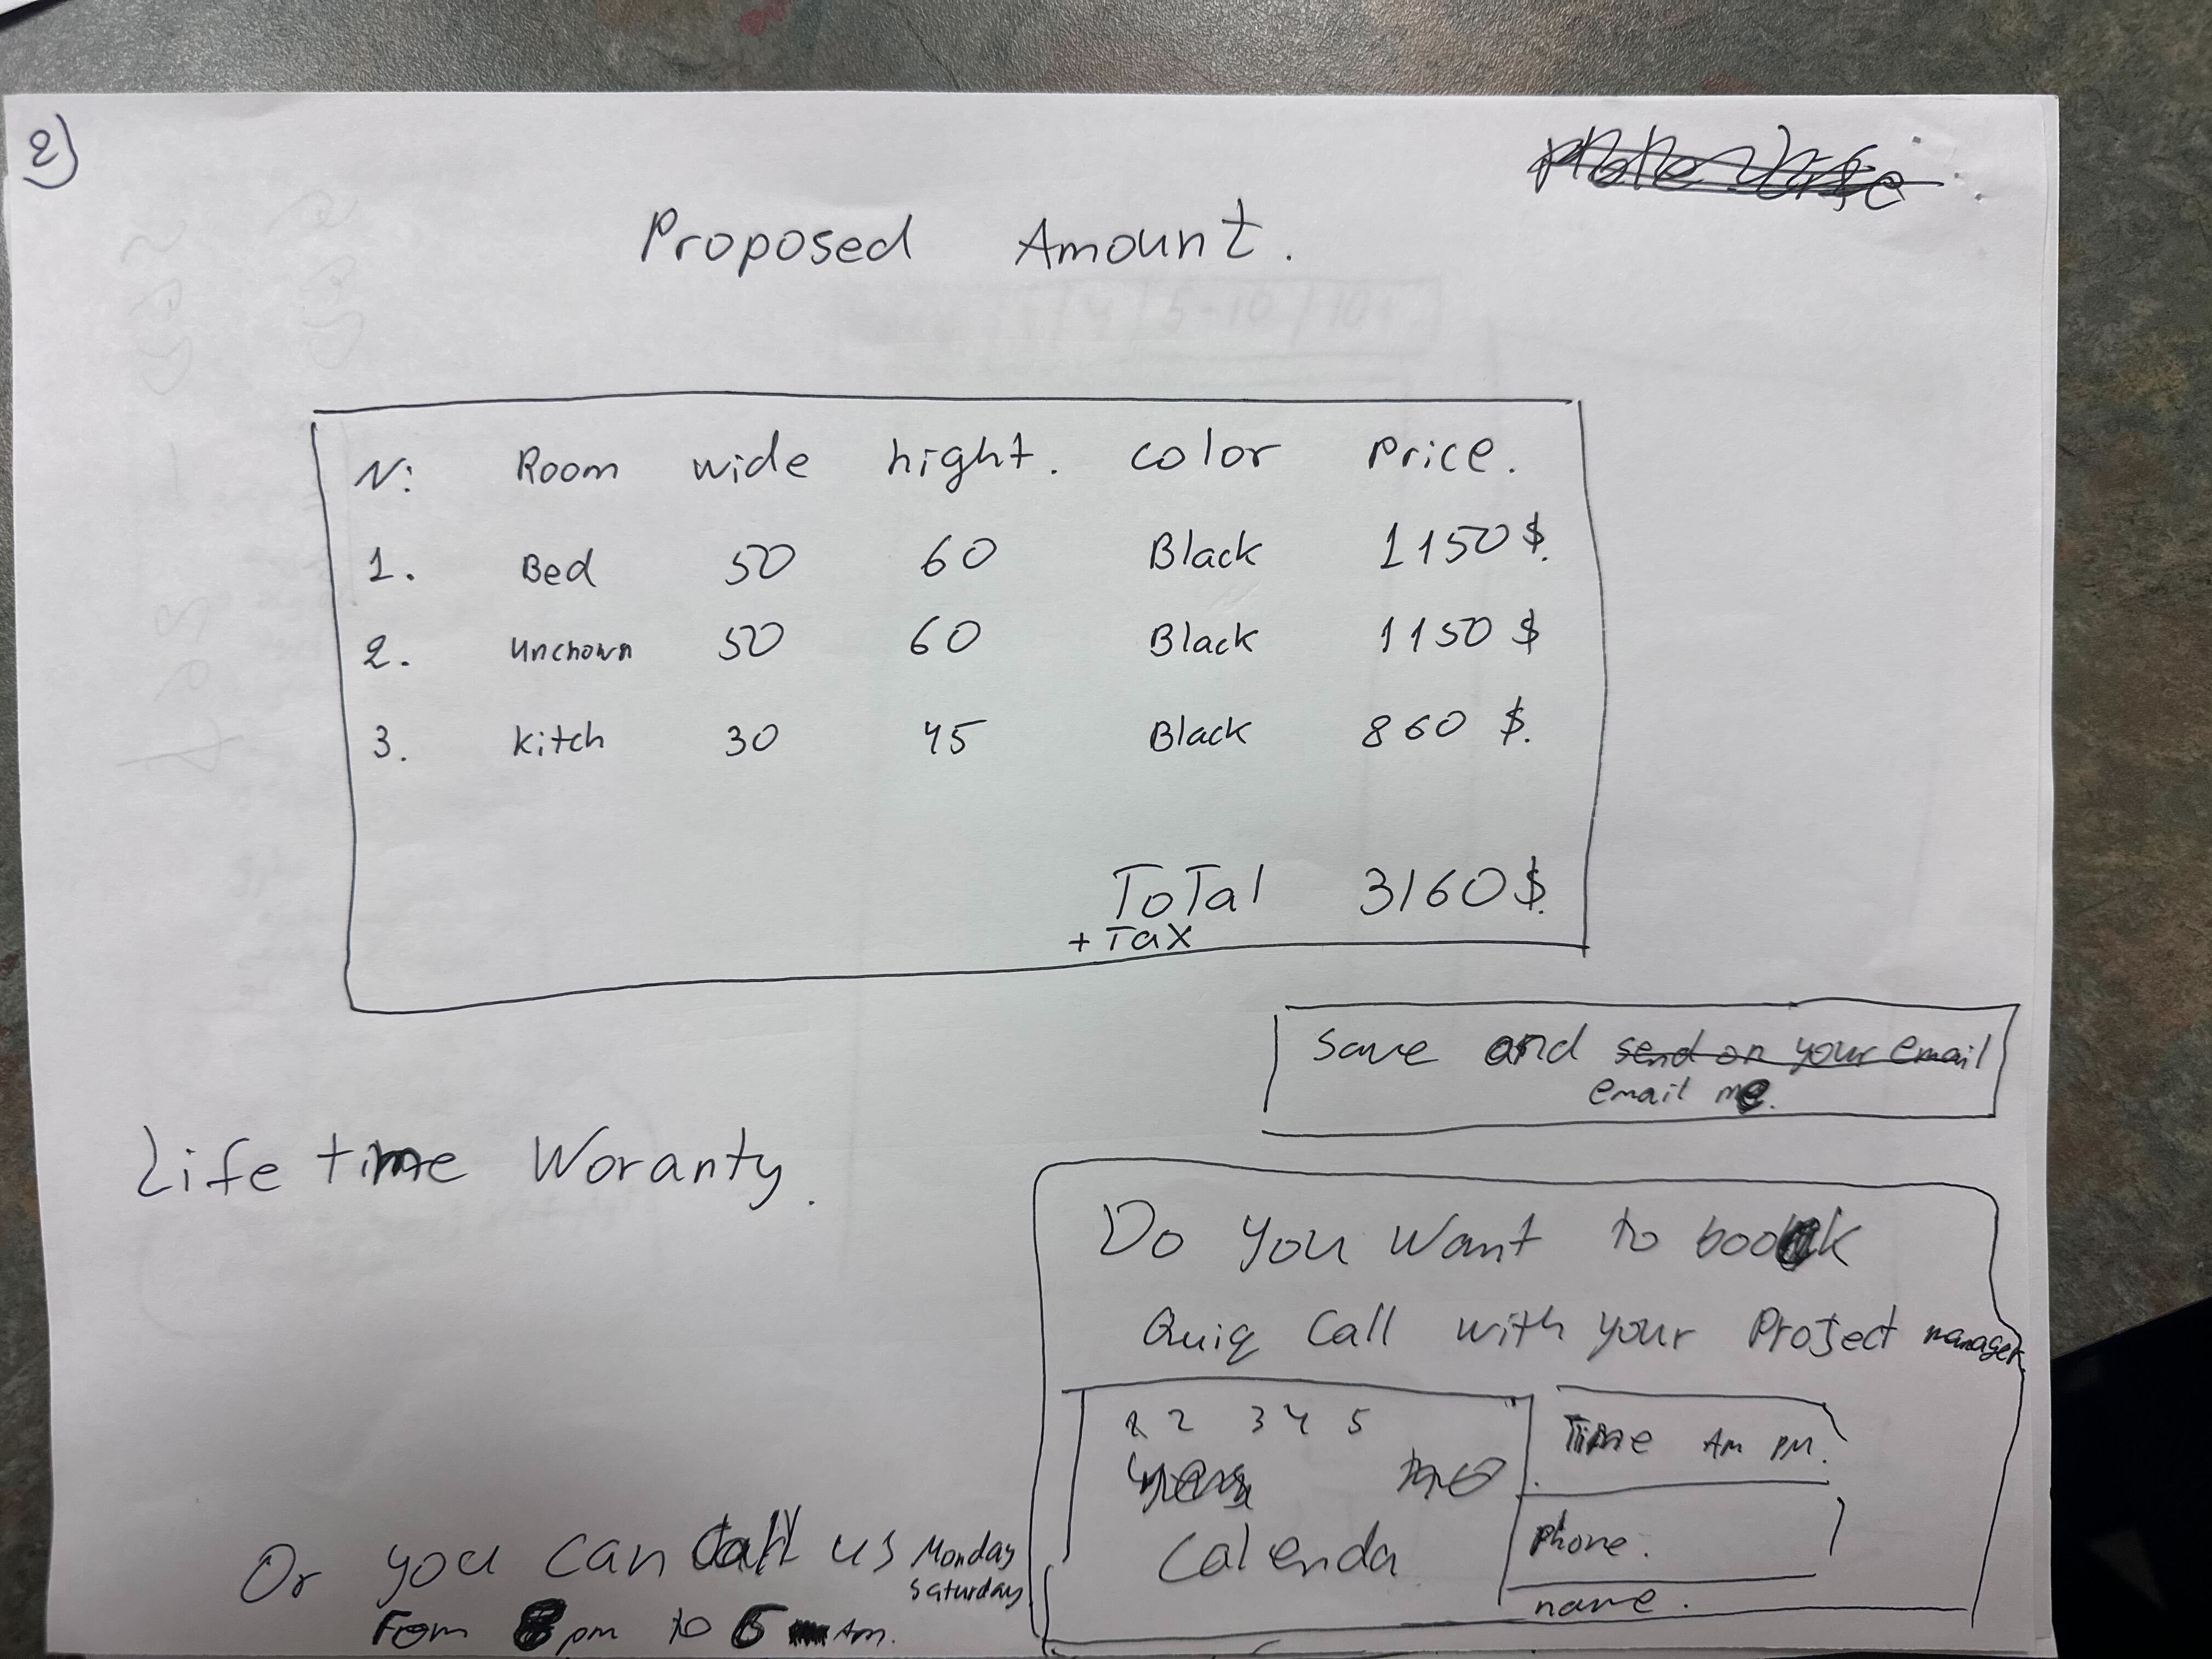 2)
Proposed Amount.
N: Room wide hight. color Price.
1. Bed 50 60 Black 1150$.
2. unchown 50 60 Black 1150$
3. kitch 30 45 Black 860 $.
ToTal 3160$.
+ Tax
Save and send on your email
email me.
Life time Woranty.
Do you want to book
Quiq Call with your Project manager
1 2 3 4 5
Calenda
Time Am pm.
phone.
name.
Or you can call us Monday
Saturday
From 8 pm to 6 Am.